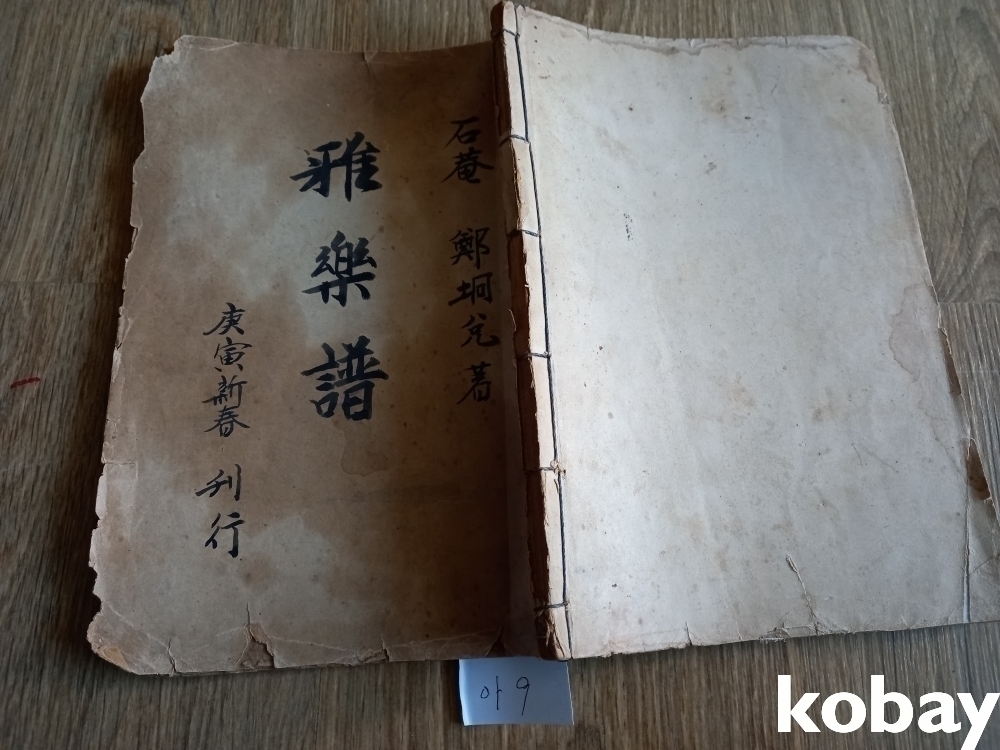 石菴 鄭坰兌 著
雅樂譜
庚寅新春 刊行
아9
kobay